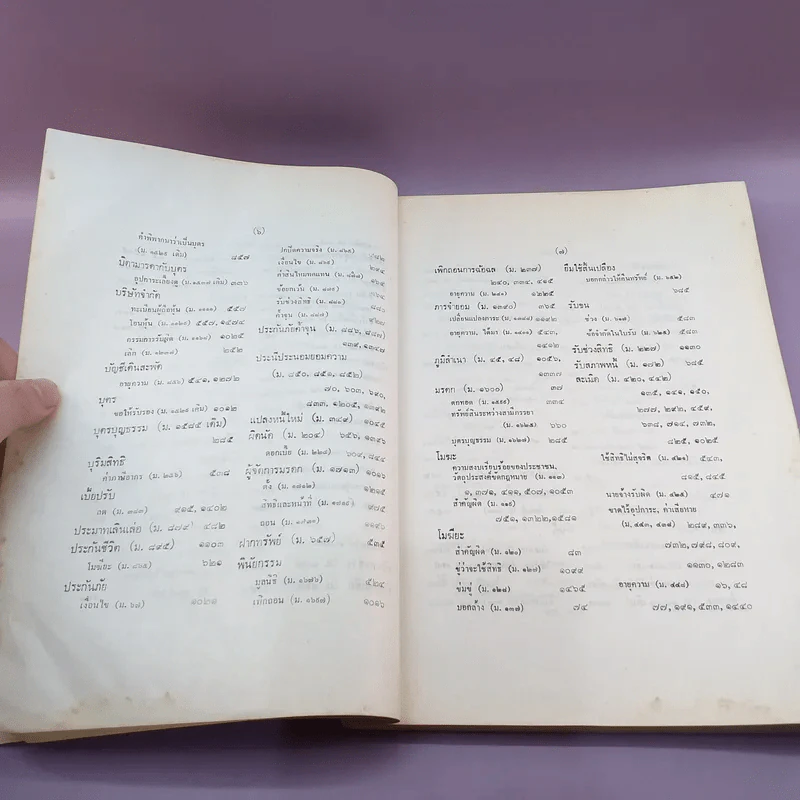 (๖)
คำพิพากษาว่าเป็นบุตร
(ม. ๑๕๒๙ เดิม) ๘๕๗
บิดามารดากับบุตร
อุปการะเลี้ยงดู (ม. ๑๕๓๗ เดิม) ๓๓๖
บริษัทจำกัด
ทะเบียนผู้ถือหุ้น ๕๕๗
โอนหุ้น
กรรมการรับผิด
เลิก
บัญชีเดินสะพัด
อายุความ ๕๔๑, ๑๒๗๒
บุตร
ขอให้รับรอง (ม. ๑๕๒๙ เดิม) ๑๐๑๒
บุตรบุญธรรม (ม. ๑๕๘๕ เดิม)
๒๘๕
บุริมสิทธิ
ค่าภาษีอากร ๕๓๘
เบี้ยปรับ
ลด (ม. ๓๘๓) ๔๑๕, ๑๔๐๒
ประมาทเลินเล่อ (ม. ๘๗๙) ๔๘๒
ประกันชีวิต (ม. ๘๙๕) ๑๑๐๓
โมฆียะ (ม. ๘๖๕) ๖๒๑
ประกันภัย
เงื่อนไข (ม. ๖๗) ๑๐๒๑
ปกปิดความจริง (ม. ๘๖๕)
เงื่อนไข
ค่าสินไหมทดแทน
ข้อยกเว้น
รับช่วงสิทธิ
ค้ำจุน
ประกันภัยค้ำจุน (ม. ๘๘๖, ๘๘๗)
๑๓๙, ๑๓๔๗
ประนีประนอมยอมความ
(ม. ๘๕๐, ๘๕๑, ๘๕๒)
๗๐, ๖๐๓, ๖๙๐,
๘๓๓, ๑๒๐๕, ๑๓๙๒
แปลงหนี้ใหม่ (ม. ๓๔๙) ๑๓๙๒
ผิดนัด (ม. ๒๐๔) ๖๕๖, ๑๓๙๖
ดอกเบี้ย ๖๐๙, ๘๑๔
ผู้จัดการมรดก (ม. ๑๗๑๓) ๑๐๑๖
ตั้ง ๑๒๑๕
สิทธิและหน้าที่
ถอน
ฝากทรัพย์ (ม. ๖๕๗) ๕๓๕
พินัยกรรม
มูลนิธิ (ม. ๑๖๗๖) ๕๒๔
เพิกถอน ๑๐๑๖
(๗)
เพิกถอนการฉ้อฉล (ม. ๒๓๗)
๒๔๐, ๓๓๔, ๔๑๕
อายุความ (ม. ๒๔๐) ๑๒๒๕
ภารจำยอม (ม. ๑๓๙๐) ๓๖๐
เปลี่ยนแปลงภาระ (ม. ๑๓๘๘) ๑๑๙๒
อายุความ, ได้มา ๕๔๓,
๑๓๓๑
ภูมิลำเนา (ม. ๔๕, ๔๘) ๑๐๕๖,
๑๓๓๗
มรดก (ม. ๑๖๐๐) ๓๗
ตกทอด ๑๓๔
ทรัพย์สินระหว่างสามีภรรยา
(ม. ๑๖๒๕) ๖๖๐
บุตรบุญธรรม (ม. ๑๖๒๗) ๒๘๕
โมฆะ
ความสงบเรียบร้อยของประชาชน,
วัตถุประสงค์ขัดกฎหมาย (ม. ๑๑๓)
๑, ๓๗๑, ๔๑๑, ๕๐๗, ๑๐๕๓
สำคัญผิด (ม. ๑๑๙)
๗๕๑, ๑๓๒๒, ๑๕๘๑
โมฆียะ
สำคัญผิด (ม. ๑๒๐) ๘๓
ขู่ว่าจะใช้สิทธิ (ม. ๑๒๗) ๑๐๙๙
ข่มขู่ (ม. ๑๒๘) ๑๔๖๕
บอกล้าง (ม. ๑๓๗) ๗๔
ยืมใช้สิ้นเปลือง
บอกกล่าวให้คืนทรัพย์ (ม. ๖๕๒)
๖๘๕
รับขน
ช่วง (ม. ๖๑๗) ๕๘๓
ข้อจำกัดในใบรับ (ม. ๖๒๕) ๕๘๓
รับช่วงสิทธิ (ม. ๒๒๗) ๑๑๓๐
รับสภาพหนี้ (ม. ๑๗๒) ๖๘๕
ละเมิด (ม. ๔๒๐, ๔๔๒)
๑๓๕, ๑๔๑, ๑๕๐,
๒๗๗, ๒๙๒, ๔๕๙,
๖๓๘, ๗๑๔, ๗๓๒,
๘๒๕, ๑๐๒๕
ใช้สิทธิไม่สุจริต (ม. ๔๒๑) ๕๔๓,
๘๓๕, ๘๕๔
นายจ้างรับผิด (ม. ๔๒๕) ๔๗๑
ขาดไร้อุปการะ, ค่าเสียหาย
(ม. ๔๔๓, ๔๓๘) ๒๘๙, ๓๓๖,
๗๓๒, ๗๙๘, ๘๐๙,
๑๑๓๐, ๑๒๘๓
อายุความ (ม. ๔๔๘) ๑๖, ๔๘
๗๗, ๑๙๑, ๕๓๓, ๑๔๔๐